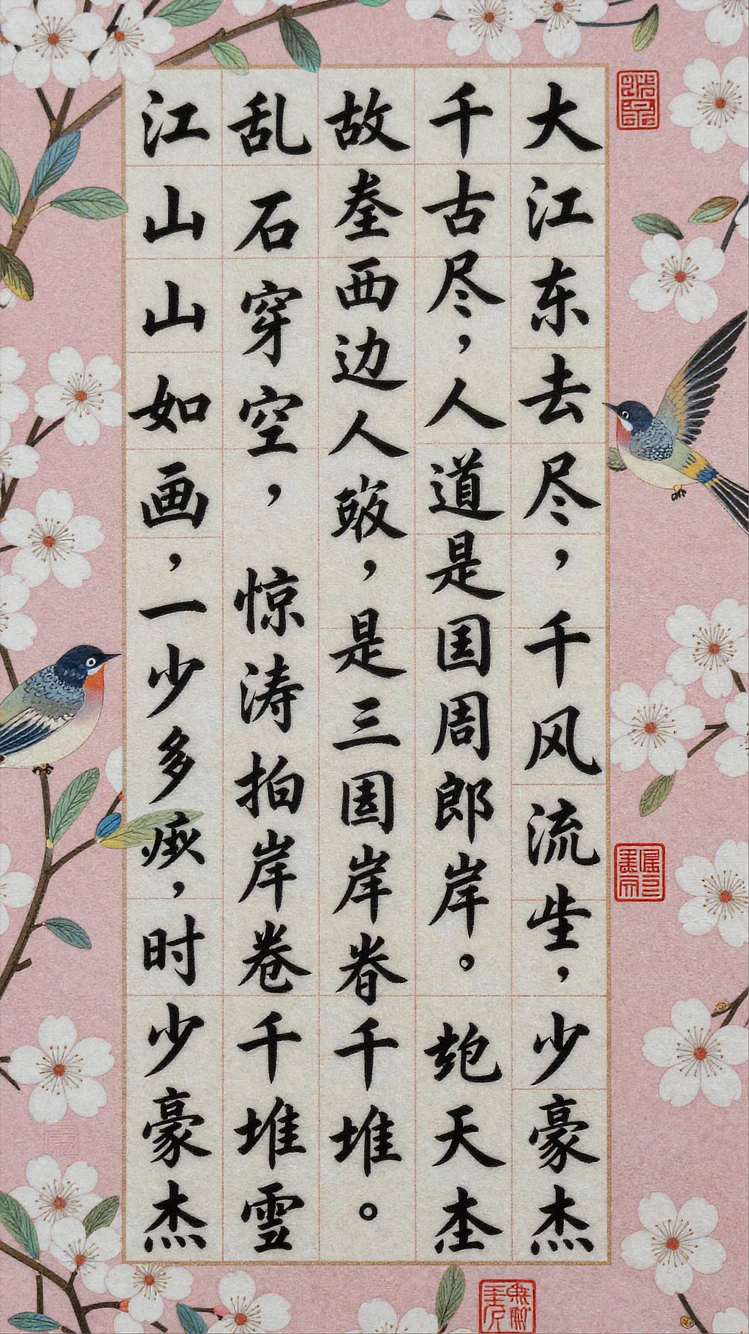 大江东去尽，千风流，少豪杰
千古尽，人道是国周郎岸。天
故西边人，是三国岸千堆。
乱石穿空，惊涛拍岸卷千堆
江山山如画，一少多，时少豪杰